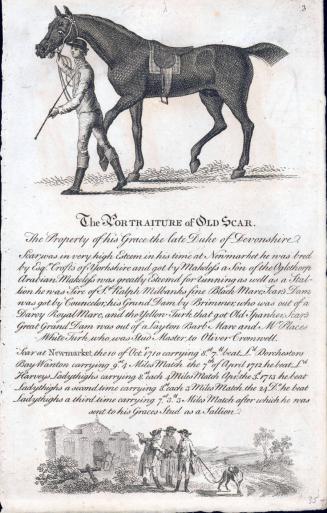 3
The PORTRAITURE of OLD SCAR.
The Property of his Grace the late Duke of Devonshire.
Scar was in very high Esteem in his time at Newmarket he was bred
by Esqr. Crofts of Yorkshire and got by Makeless a Son of the Oglethorp
Arabian Makeless was greatly Esteem'd for running as well as a Stal-
lion. he was Sire of Sr. Ralph Milbanks fine Black Mare, Scar's Dam
was got by Councelor, his Grand Dam by Brimmer, who was out of a
Darcy Royal Mare, and the Yellow Turk that got Old Spanker, Scar's
Great Grand Dam was out of a Layton Barb Mare and Mr. Places
White Turk, who was Stud Master to Oliver Cromwell.
Scar at Newmarket, the 10 of Oct. 1710 carrying 8s. 7lb. beat Ld. Dorchesters
Bay Wanton carrying 9s. 4 Miles Match, the 7th of April 1712 he beat Ld.
Harveys Ladythighs carrying 8s. each 4 Miles Match Apr. the 3d. 1713 he beat
Ladythighs a second time carrying 8s. each 3 Miles Match, the 24 Do. he beat
Ladythighs a third time carrying 7s. 3lb. 3 Miles Match after which he was
sent to his Graces Stud as a Stallion.
35